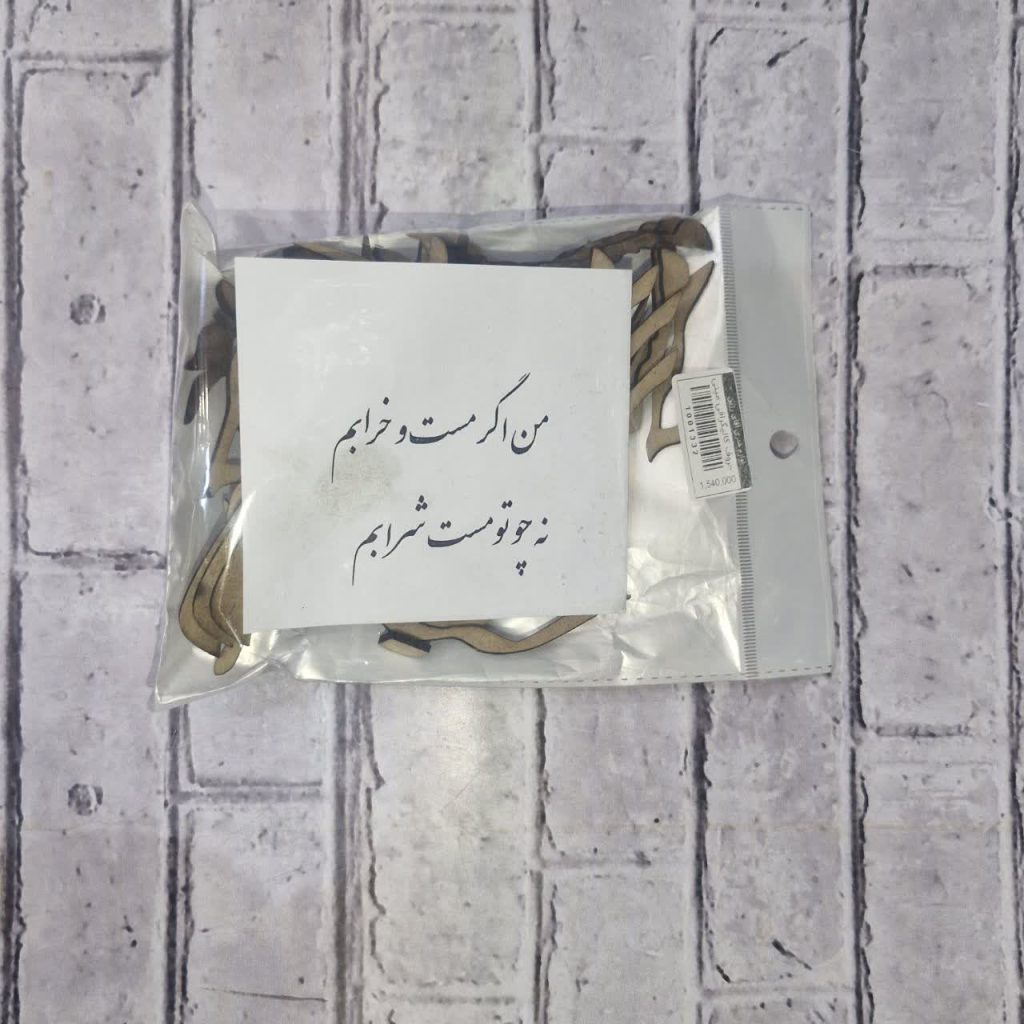 من اگر مست و خرابم
نه چو تو مست شرابم
1001332
1,540,000